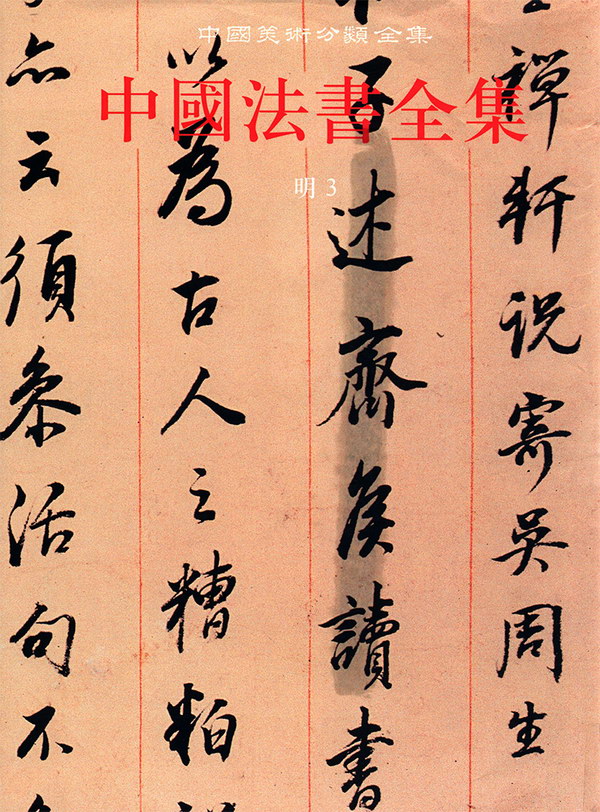 中國美術分類全集
中國法書全集
明 3
禪軒説寄吳周生
子述齊侯讀書
以為古人之糟粕
亦云須參活句不